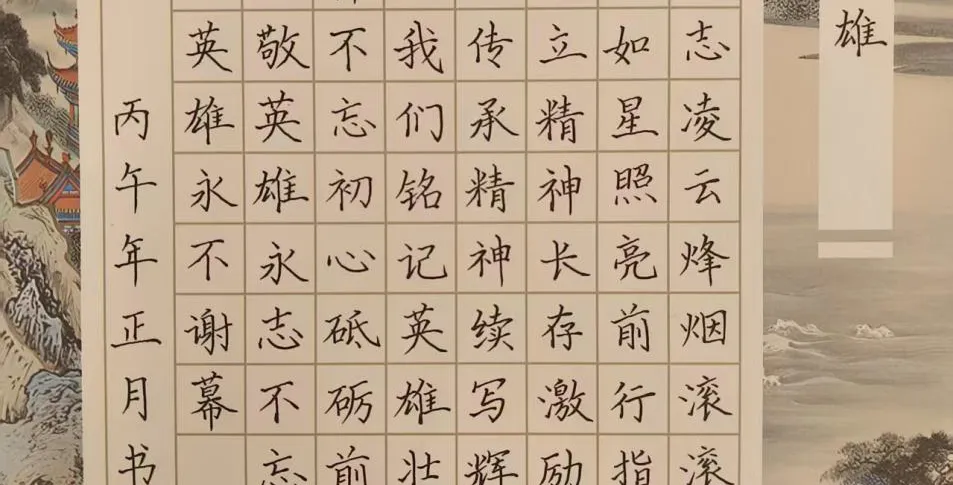 雄
志凌云烽烟滚滚
如星照亮前行指
立精神长存激励
传承精神续写辉
我们铭记英雄壮
不忘初心砥砺前
敬英雄永志不忘
英雄永不谢幕
丙午年正月书